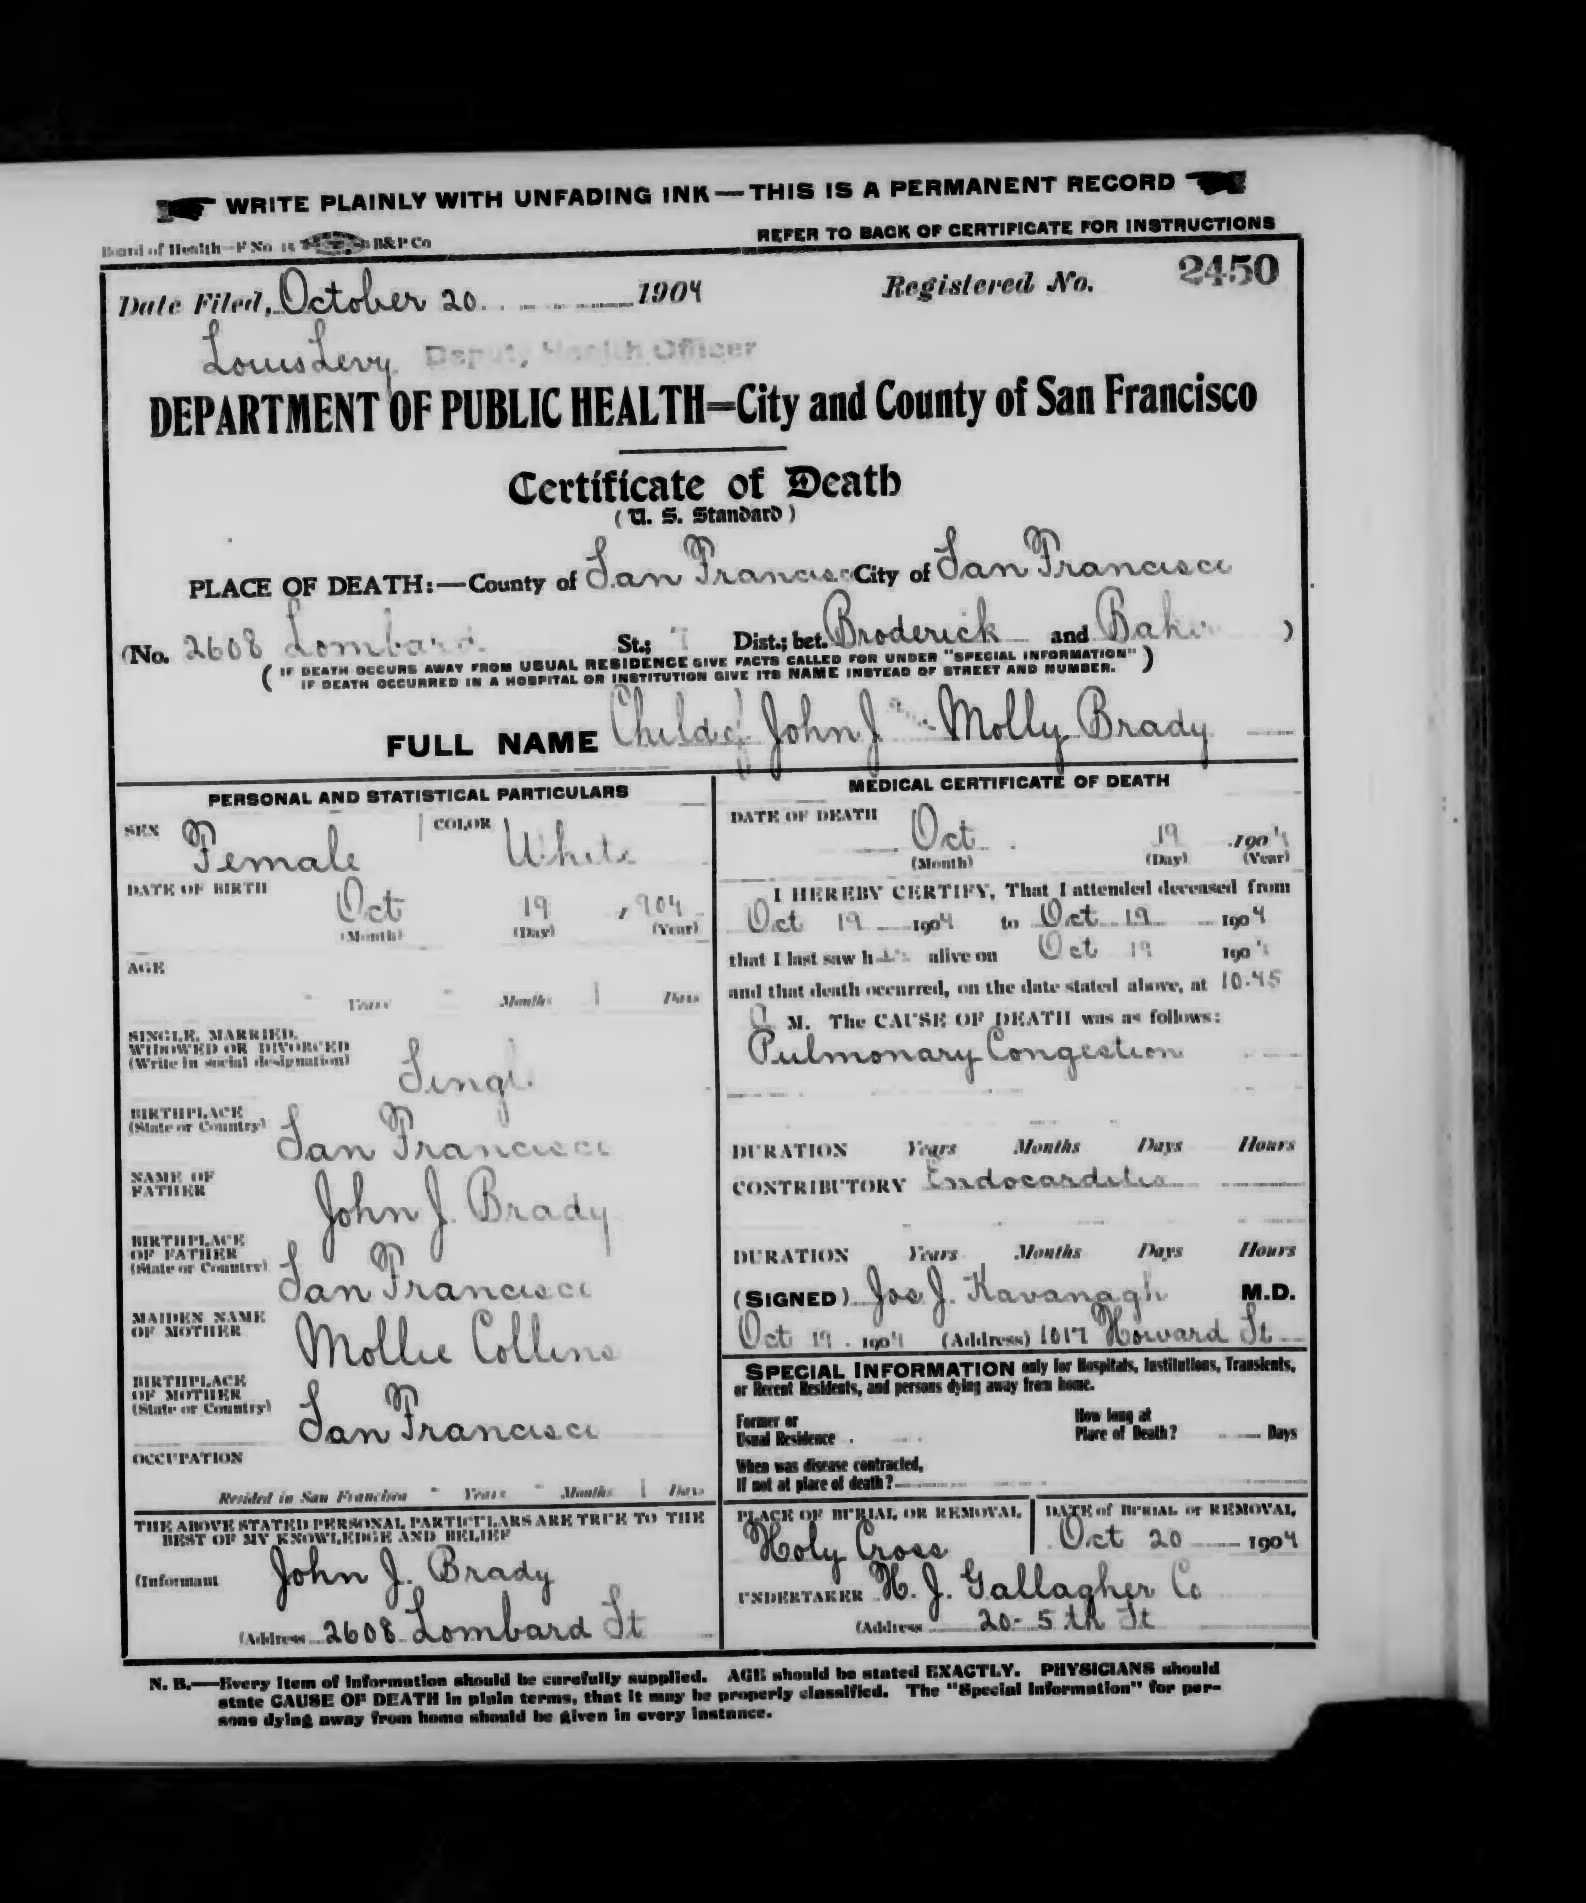 WRITE PLAINLY WITH UNFADING INK—THIS IS A PERMANENT RECORD
Board of Health—F No. 15 B&P Co
REFER TO BACK OF CERTIFICATE FOR INSTRUCTIONS
Date Filed, October 20 1904 Registered No. 2450
Louis Levy Deputy Health Officer
DEPARTMENT OF PUBLIC HEALTH=City and County of San Francisco
Certificate of Death
(U. S. Standard)
PLACE OF DEATH:—County of San Francisco City of San Francisco
(No. 2608 Lombard St.; 7 Dist.; bet. Broderick and Baker )
( IF DEATH OCCURS AWAY FROM USUAL RESIDENCE GIVE FACTS CALLED FOR UNDER "SPECIAL INFORMATION" )
IF DEATH OCCURRED IN A HOSPITAL OR INSTITUTION GIVE ITS NAME INSTEAD OF STREET AND NUMBER.
FULL NAME Child of John J and Molly Brady
PERSONAL AND STATISTICAL PARTICULARS
SEX Female COLOR White
DATE OF BIRTH
Oct 19 1904
(Month) (Day) (Year)
AGE
- Years - Months 1 Days
SINGLE, MARRIED,
WIDOWED OR DIVORCED
(Write in social designation)
Single
BIRTHPLACE
(State or Country)
San Francisco
NAME OF
FATHER
John J. Brady
BIRTHPLACE
OF FATHER
(State or Country)
San Francisco
MAIDEN NAME
OF MOTHER
Mollie Collins
BIRTHPLACE
OF MOTHER
(State or Country)
San Francisco
OCCUPATION
Resided in San Francisco - Years - Months 1 Days
THE ABOVE STATED PERSONAL PARTICULARS ARE TRUE TO THE
BEST OF MY KNOWLEDGE AND BELIEF
(Informant John J. Brady
(Address 2608 Lombard St
MEDICAL CERTIFICATE OF DEATH
DATE OF DEATH
Oct 19 1904
(Month) (Day) (Year)
I HEREBY CERTIFY, That I attended deceased from
Oct 19 1904 to Oct 19 1904
that I last saw her alive on Oct 19 1904
and that death occurred, on the date stated above, at 10-45
A M. The CAUSE OF DEATH was as follows:
Pulmonary Congestion
DURATION Years Months Days Hours
CONTRIBUTORY Endocarditis
DURATION Years Months Days Hours
(SIGNED) Jos J. Kavanagh M.D.
Oct 19 1904 (Address) 1017 Howard St
SPECIAL INFORMATION only for Hospitals, Institutions, Transients,
or Recent Residents, and persons dying away from home.
Former or
Usual Residence
How long at
Place of Death? Days
When was disease contracted,
If not at place of death?
PLACE OF BURIAL OR REMOVAL
Holy Cross
DATE of BURIAL or REMOVAL
Oct 20 1904
UNDERTAKER H. J. Gallagher Co
(Address 20-5th St
N. B.—Every item of information should be carefully supplied. AGE should be stated EXACTLY. PHYSICIANS should
state CAUSE OF DEATH in plain terms, that it may be properly classified. The "Special Information" for per-
sons dying away from home should be given in every instance.